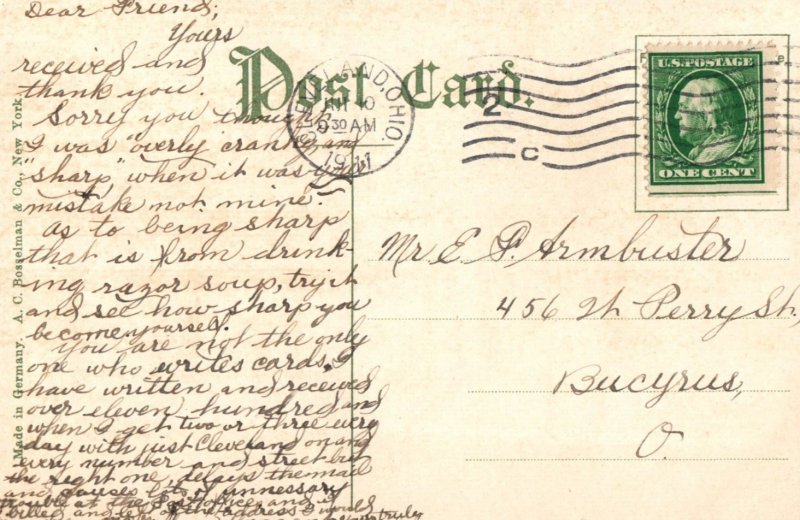 Dear Friend;
Yours
received and
thank you.
Sorry you thought
I was "overly cranky and
"sharp" when it was your
mistake not mine.
as to being sharp
that is from drink-
ing razor soup, try it
and see how sharp you
become yourself.
You are not the only
one who writes cards, I
have written and received
over eleven hundred and
when I get two or three every
day with just Cleveland on and
every number and street but
the right one, delays the mail
and causes lots of unnessary
trouble at the Post office and
of the address I would
truly
Post Card.
CLEVELAND, OHIO.
930 AM
1911
2
C
U.S. POSTAGE
ONE CENT
Mr E P. Armbuster
456 W Perry St,
Bucyrus,
O.
Made in Germany. A. C. Bosselman & Co., New York